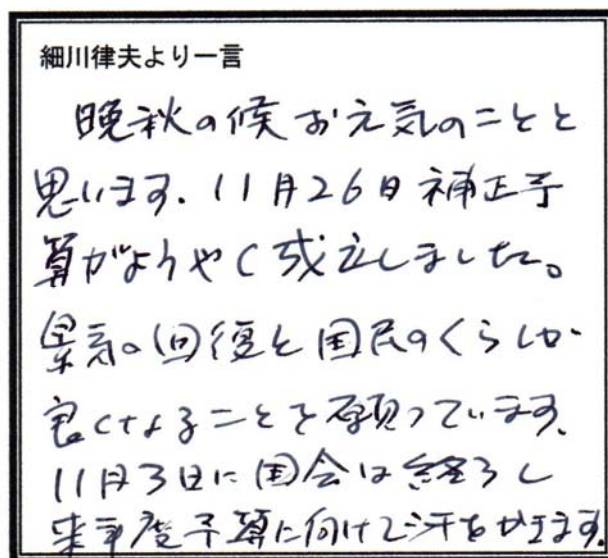 細川律夫より一言
晩秋の候お元気のことと
思います。11月26日補正予
算がようやく成立しました。
景気の回復と国民のくらしが
良くなることを願っています。
11月3日に国会は終了し
来年度予算に向けて汗をかきます。